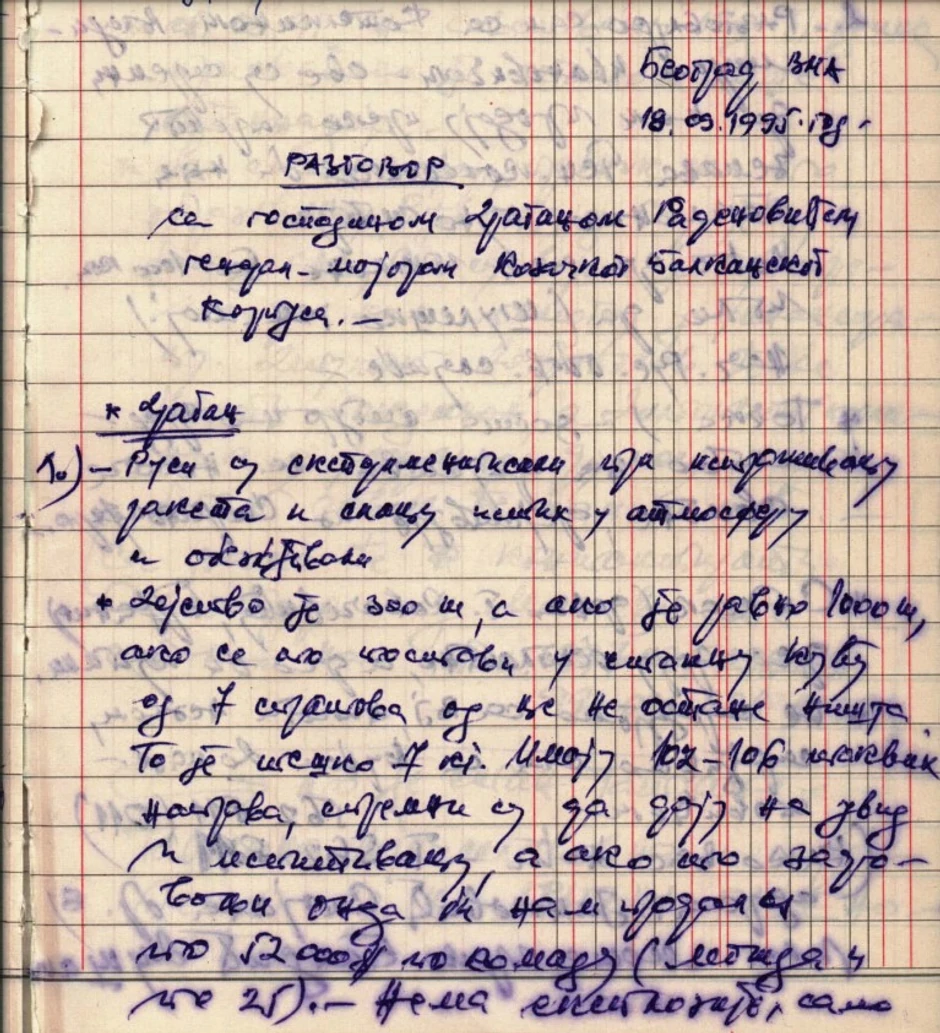 Београд ВМА
18.09.1995. год.
РАЗГОВОР
са господином Драганом Раденовићем
генерал-мајором Козачког Балканског
Корпуса.–
* Драган
1o) – Руси су експериментисали при
ракета и у атмосферу
и
* Дејство је 300 m, а ако је равно 1000 m,
ако се то постави у кућу
од 7 спратова од ње не остане ништа
То је тешко 7 кг. Имају 102–106 таквих
направа, спремни су да дају на увид
и испитивању, а ако то задо–
вољи онда би нам продали
по 52000$ по комаду (можда и
по 25).– Нема експлозије, само